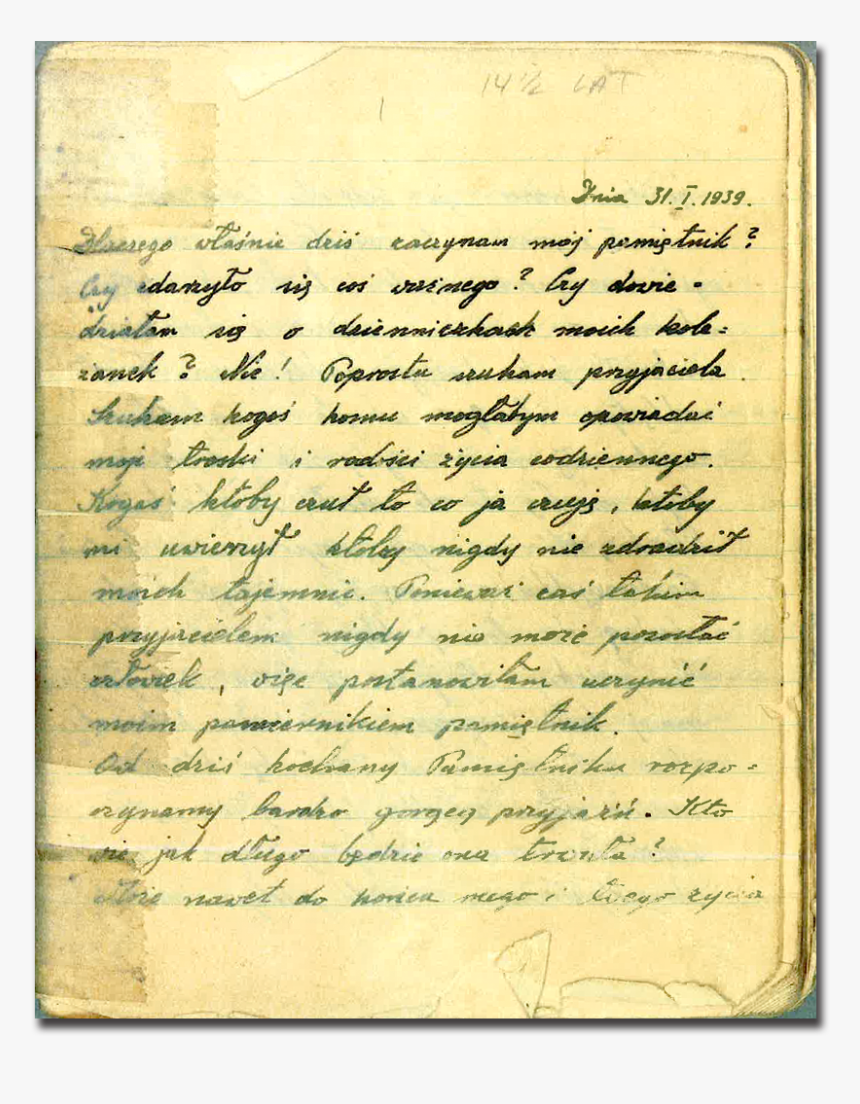 14½ LAT
1
Dnia 31.I.1939.
Dlaczego właśnie dziś zaczynam mój pamiętnik?
Czy zdarzyło się coś ważnego? Czy dowie-
działam się o dzienniczkach moich kole=
żanek? Nie! Poprostu szukam przyjaciela.
Szukam kogoś komu mogłabym opowiadać
moje troski i radości życia codziennego.
Kogoś któby czuł to co ja czuję, któby
mi uwierzył któby nigdy nie zdradził
moich tajemnic. Ponieważ zaś takim
przyjacielem nigdy nie może pozostać
człowiek, więc postanowiłam uczynić
moim powiernikiem pamiętnik.
Od dziś kochany Pamiętniku rozpo-
czynamy bardzo gorącą przyjaźń. Kto
wie jak długo będzie ona trwała?
Może nawet do końca mego i twego życia